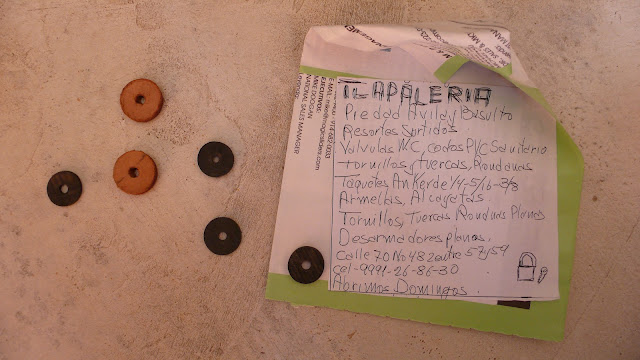 TLAPALERIA
Piedad Avila y Basulto
Resortes Surtidos
Valvulas WC, codos PVC Sanitario
tornillos, tuercas, Rondanas
Taquetes An Kerde 1/4-5/16-3/8
Armellas, Alcayatas.
Tornillos, Tuercas Rondanas Planas
Desarmadores planos.
Calle 70 No 482 entre 57 y 59
cel-9991-26-86-30
Abrimos Domingos.
NATIONAL SALES MANAGER
MIKE DOOGAN
EXECUTIVE: